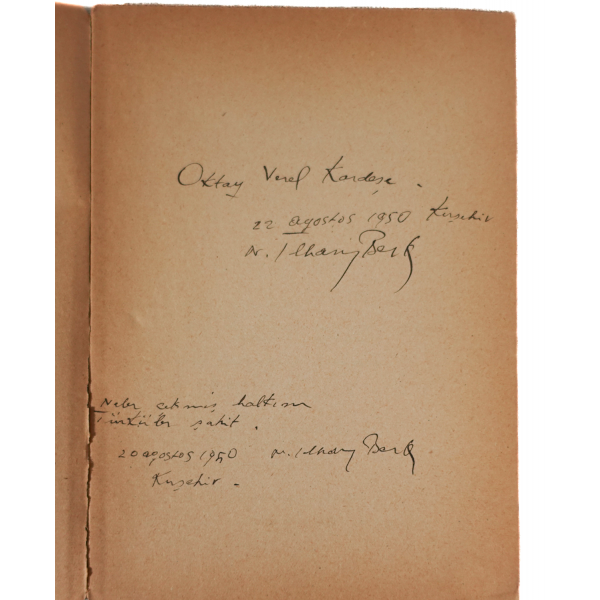 Oktay Verel Kardeşe.
22 agostos 1950 Kırşehir
N. İlhan Berk
Neler çekmiş halkım
Türküler şahit.
20 agostos 1950 N. İlhan Berk
Kırşehir.